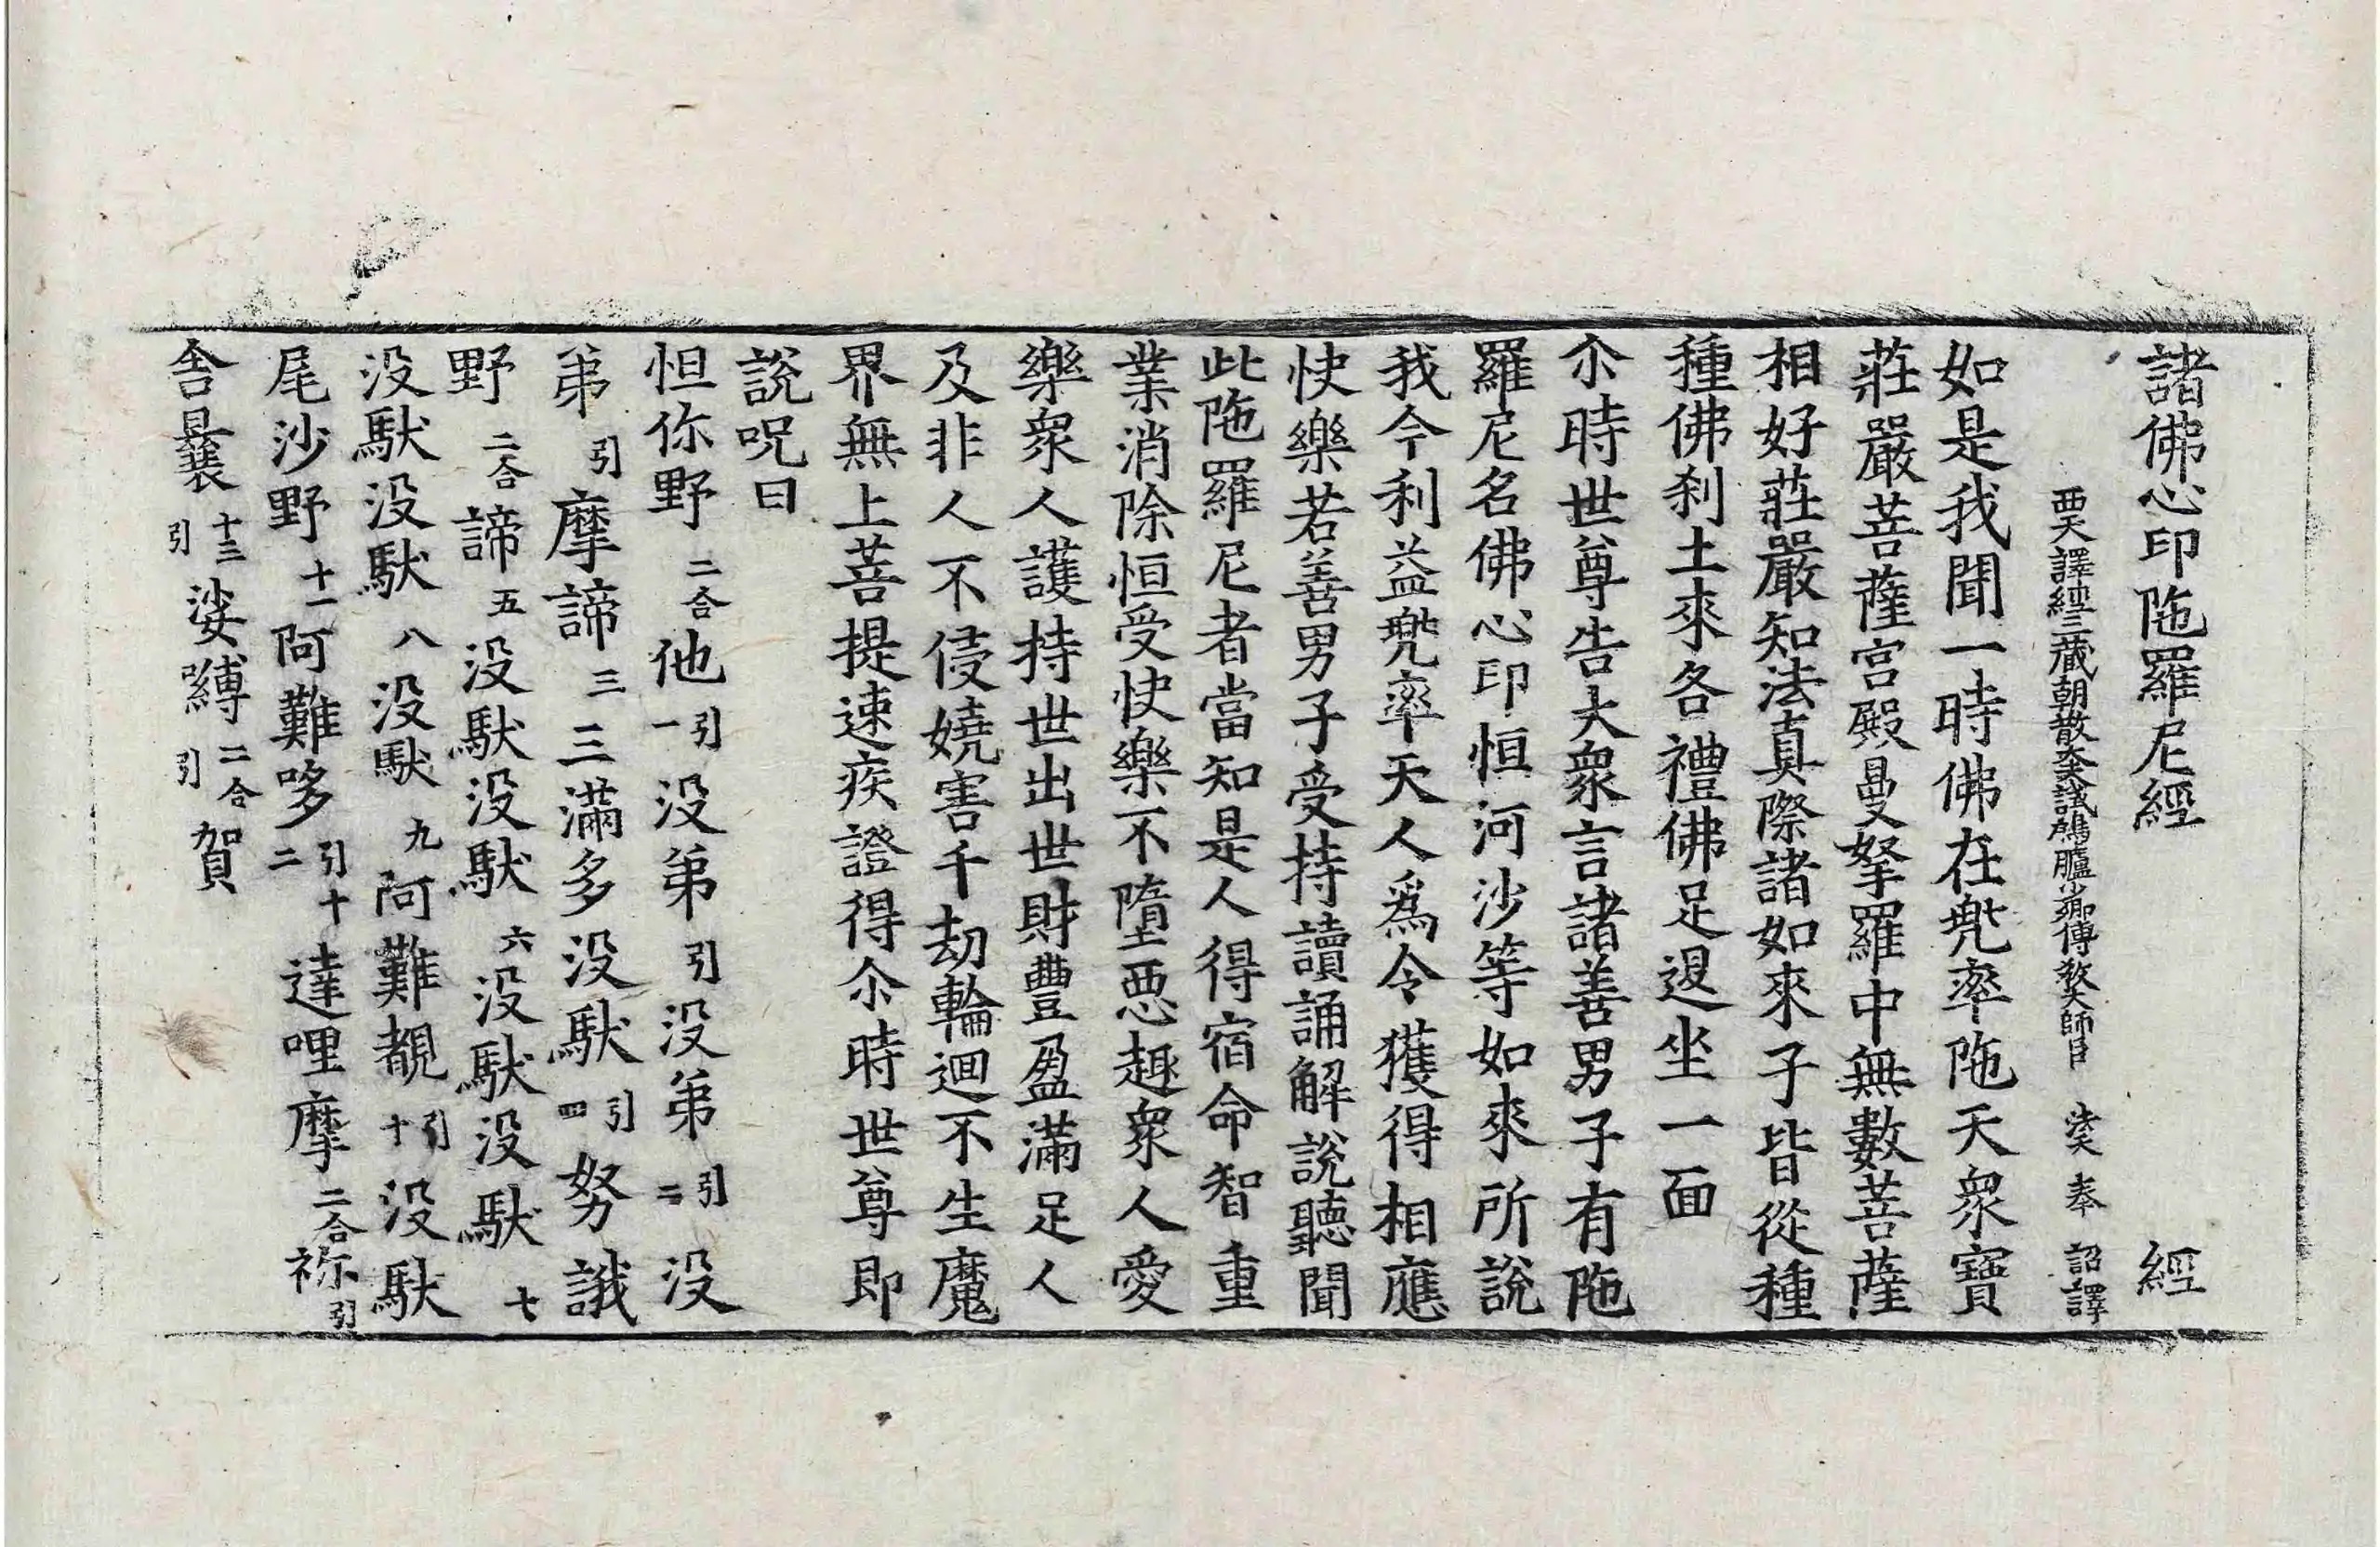 諸佛心印陁羅尼經 經
西天譯經三藏朝散大夫試鴻臚少卿傳教大師臣 法天 奉 詔譯
如是我聞一時佛在兠率陁天衆寶
莊嚴菩薩宮殿曼拏羅中無數菩薩
相好莊嚴知法真際諸如來子皆從種
種佛刹土來各禮佛足退坐一面
尒時世尊告大衆言諸善男子有陁
羅尼名佛心印恒河沙等如來所說
我今利益兠率天人爲令獲得相應
快樂若善男子受持讀誦解說聽聞
此陁羅尼者當知是人得宿命智重
業消除恒受快樂不墮惡趣衆人愛
樂衆人護持世出世財豐盈滿足人
及非人不侵嬈害千劫輪迴不生魔
界無上菩提速疾證得尒時世尊即
說呪曰
怛你野二合他引一没弟引没弟引二没
弟引摩諦三三滿多没䭾引四努誐
野二合諦五没䭾没䭾六没䭾没䭾七
没䭾没䭾八没䭾九阿難覩引十没䭾
尾沙野十一阿難哆引十二達哩摩二合祢引
舍曩十三引娑嚩二合引賀